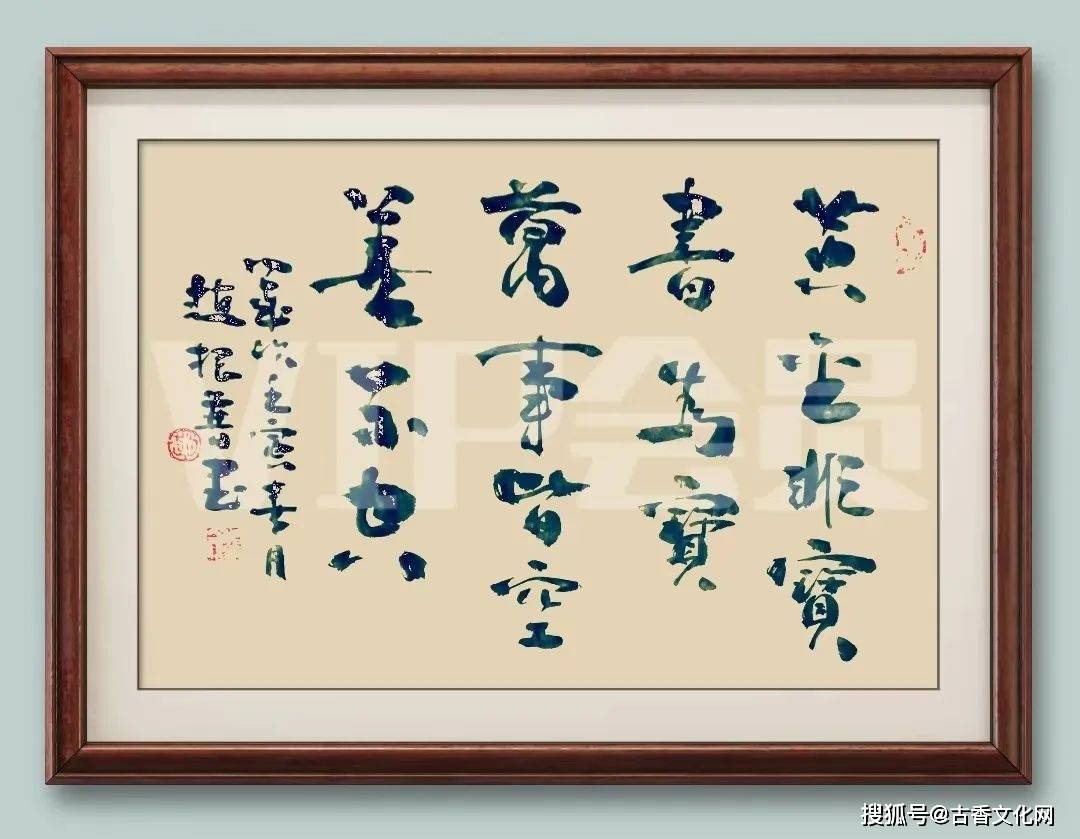 黄金非寶
書為寶
萬事皆空
善不空
歲次壬寅春月
趙根
VIP会员
搜狐号@古香文化网